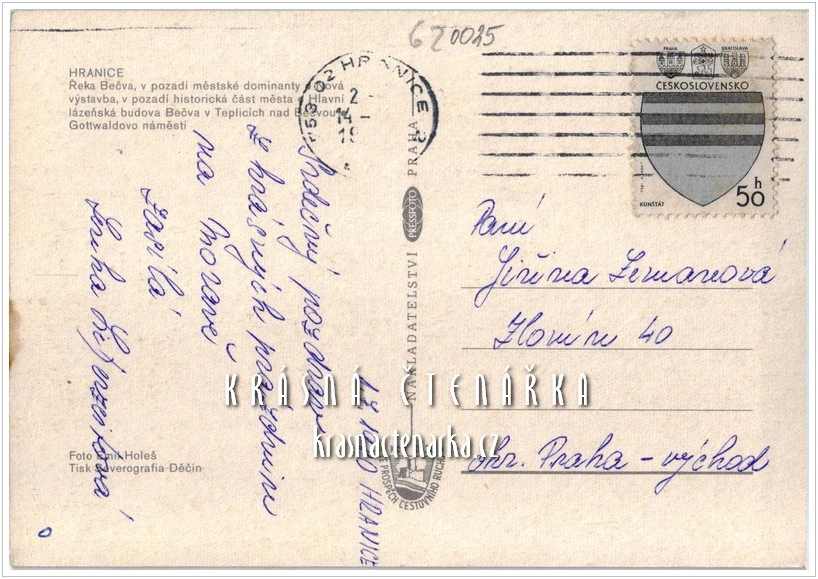 620025
HRANICE
Řeka Bečva, v pozadí městské dominanty - nová
výstavba, v pozadí historická část města - Hlavní
lázeňská budova Bečva v Teplicích nad Bečvou
Gottwaldovo náměstí
753 02 HRANICE
2
14
PRAHA BRATISLAVA
ČESKOSLOVENSKO
50 h
KUNŠTÁT
Srdečný pozdrav
z krásných prázdnin
na Moravě
zasílá
NAKLADATELSTVÍ PRESSFOTO PRAHA
VE PROSPĚCH CESTOVNÍHO RUCHU
HRANICE
Paní
Jiřina Zemanová
Zlonín 40
okr. Praha - východ
Foto Emil Holeš
Tisk Severografia Děčín
KRÁSNÁ ČTENÁŘKA
krasnactenarka.cz